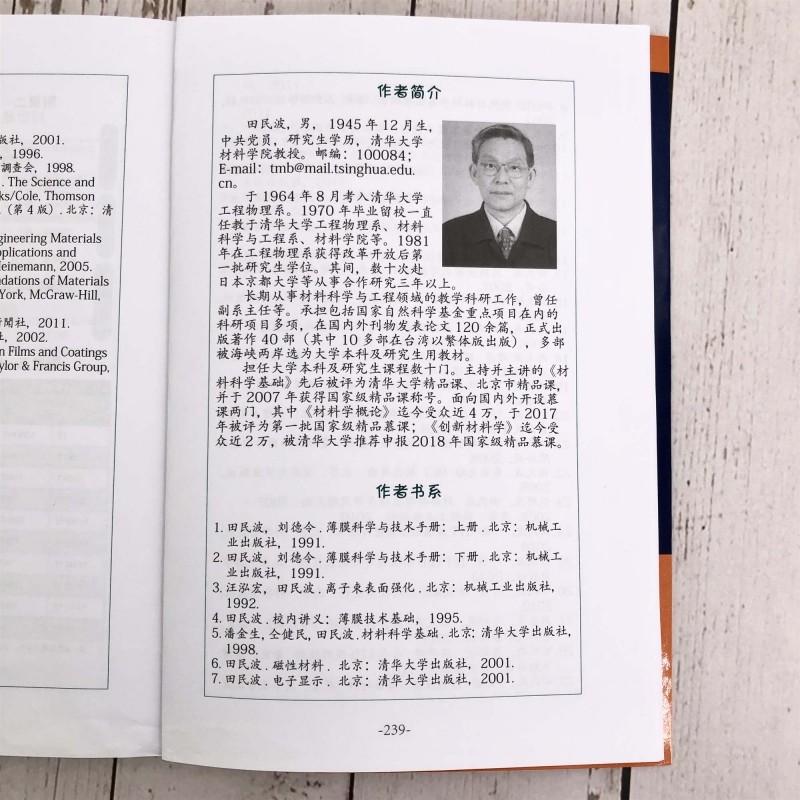 版社，2001.
，1996.
調查会，1998.
. The Science and
ks/Cole, Thomson
.（第4版）. 北京：清
gineering Materials
pplications and
Heinemann, 2005.
ndations of Materials
York, McGraw-Hill,
聞社，2011.
社，2002.
n Films and Coatings
ylor & Francis Group,
作者简介
田民波，男，1945年12月生，
中共党员，研究生学历，清华大学
材料学院教授。邮编：100084；
E-mail：tmb@mail.tsinghua.edu.
cn。
于1964年8月考入清华大学
工程物理系。1970年毕业留校一直
任教于清华大学工程物理系、材料
科学与工程系、材料学院等。1981
年在工程物理系获得改革开放后第
一批研究生学位。其间，数十次赴
日本京都大学等从事合作研究三年以上。
长期从事材料科学与工程领域的教学科研工作，曾任
副系主任等。承担包括国家自然科学基金重点项目在内的
科研项目多项，在国内外刊物发表论文120余篇，正式出
版著作40部（其中10多部在台湾以繁体版出版），多部
被海峡两岸选为大学本科及研究生用教材。
担任大学本科及研究生课程数十门。主持并主讲的《材
料科学基础》先后被评为清华大学精品课、北京市精品课，
并于2007年获得国家级精品课称号。面向国内外开设慕
课两门，其中《材料学概论》迄今受众近4万，于2017
年被评为第一批国家级精品慕课；《创新材料学》迄今受
众近2万，被清华大学推荐申报2018年国家级精品慕课。
作者书系
1. 田民波，刘德令．薄膜科学与技术手册：上册．北京：机械工
业出版社，1991.
2. 田民波，刘德令．薄膜科学与技术手册：下册．北京：机械工
业出版社，1991.
3. 汪泓宏，田民波．离子束表面强化．北京：机械工业出版社，
1992.
4. 田民波．校内讲义：薄膜技术基础，1995.
5. 潘金生，仝健民，田民波．材料科学基础．北京：清华大学出版社，
1998.
6. 田民波．磁性材料．北京：清华大学出版社，2001.
7. 田民波．电子显示．北京：清华大学出版社，2001.
-239-